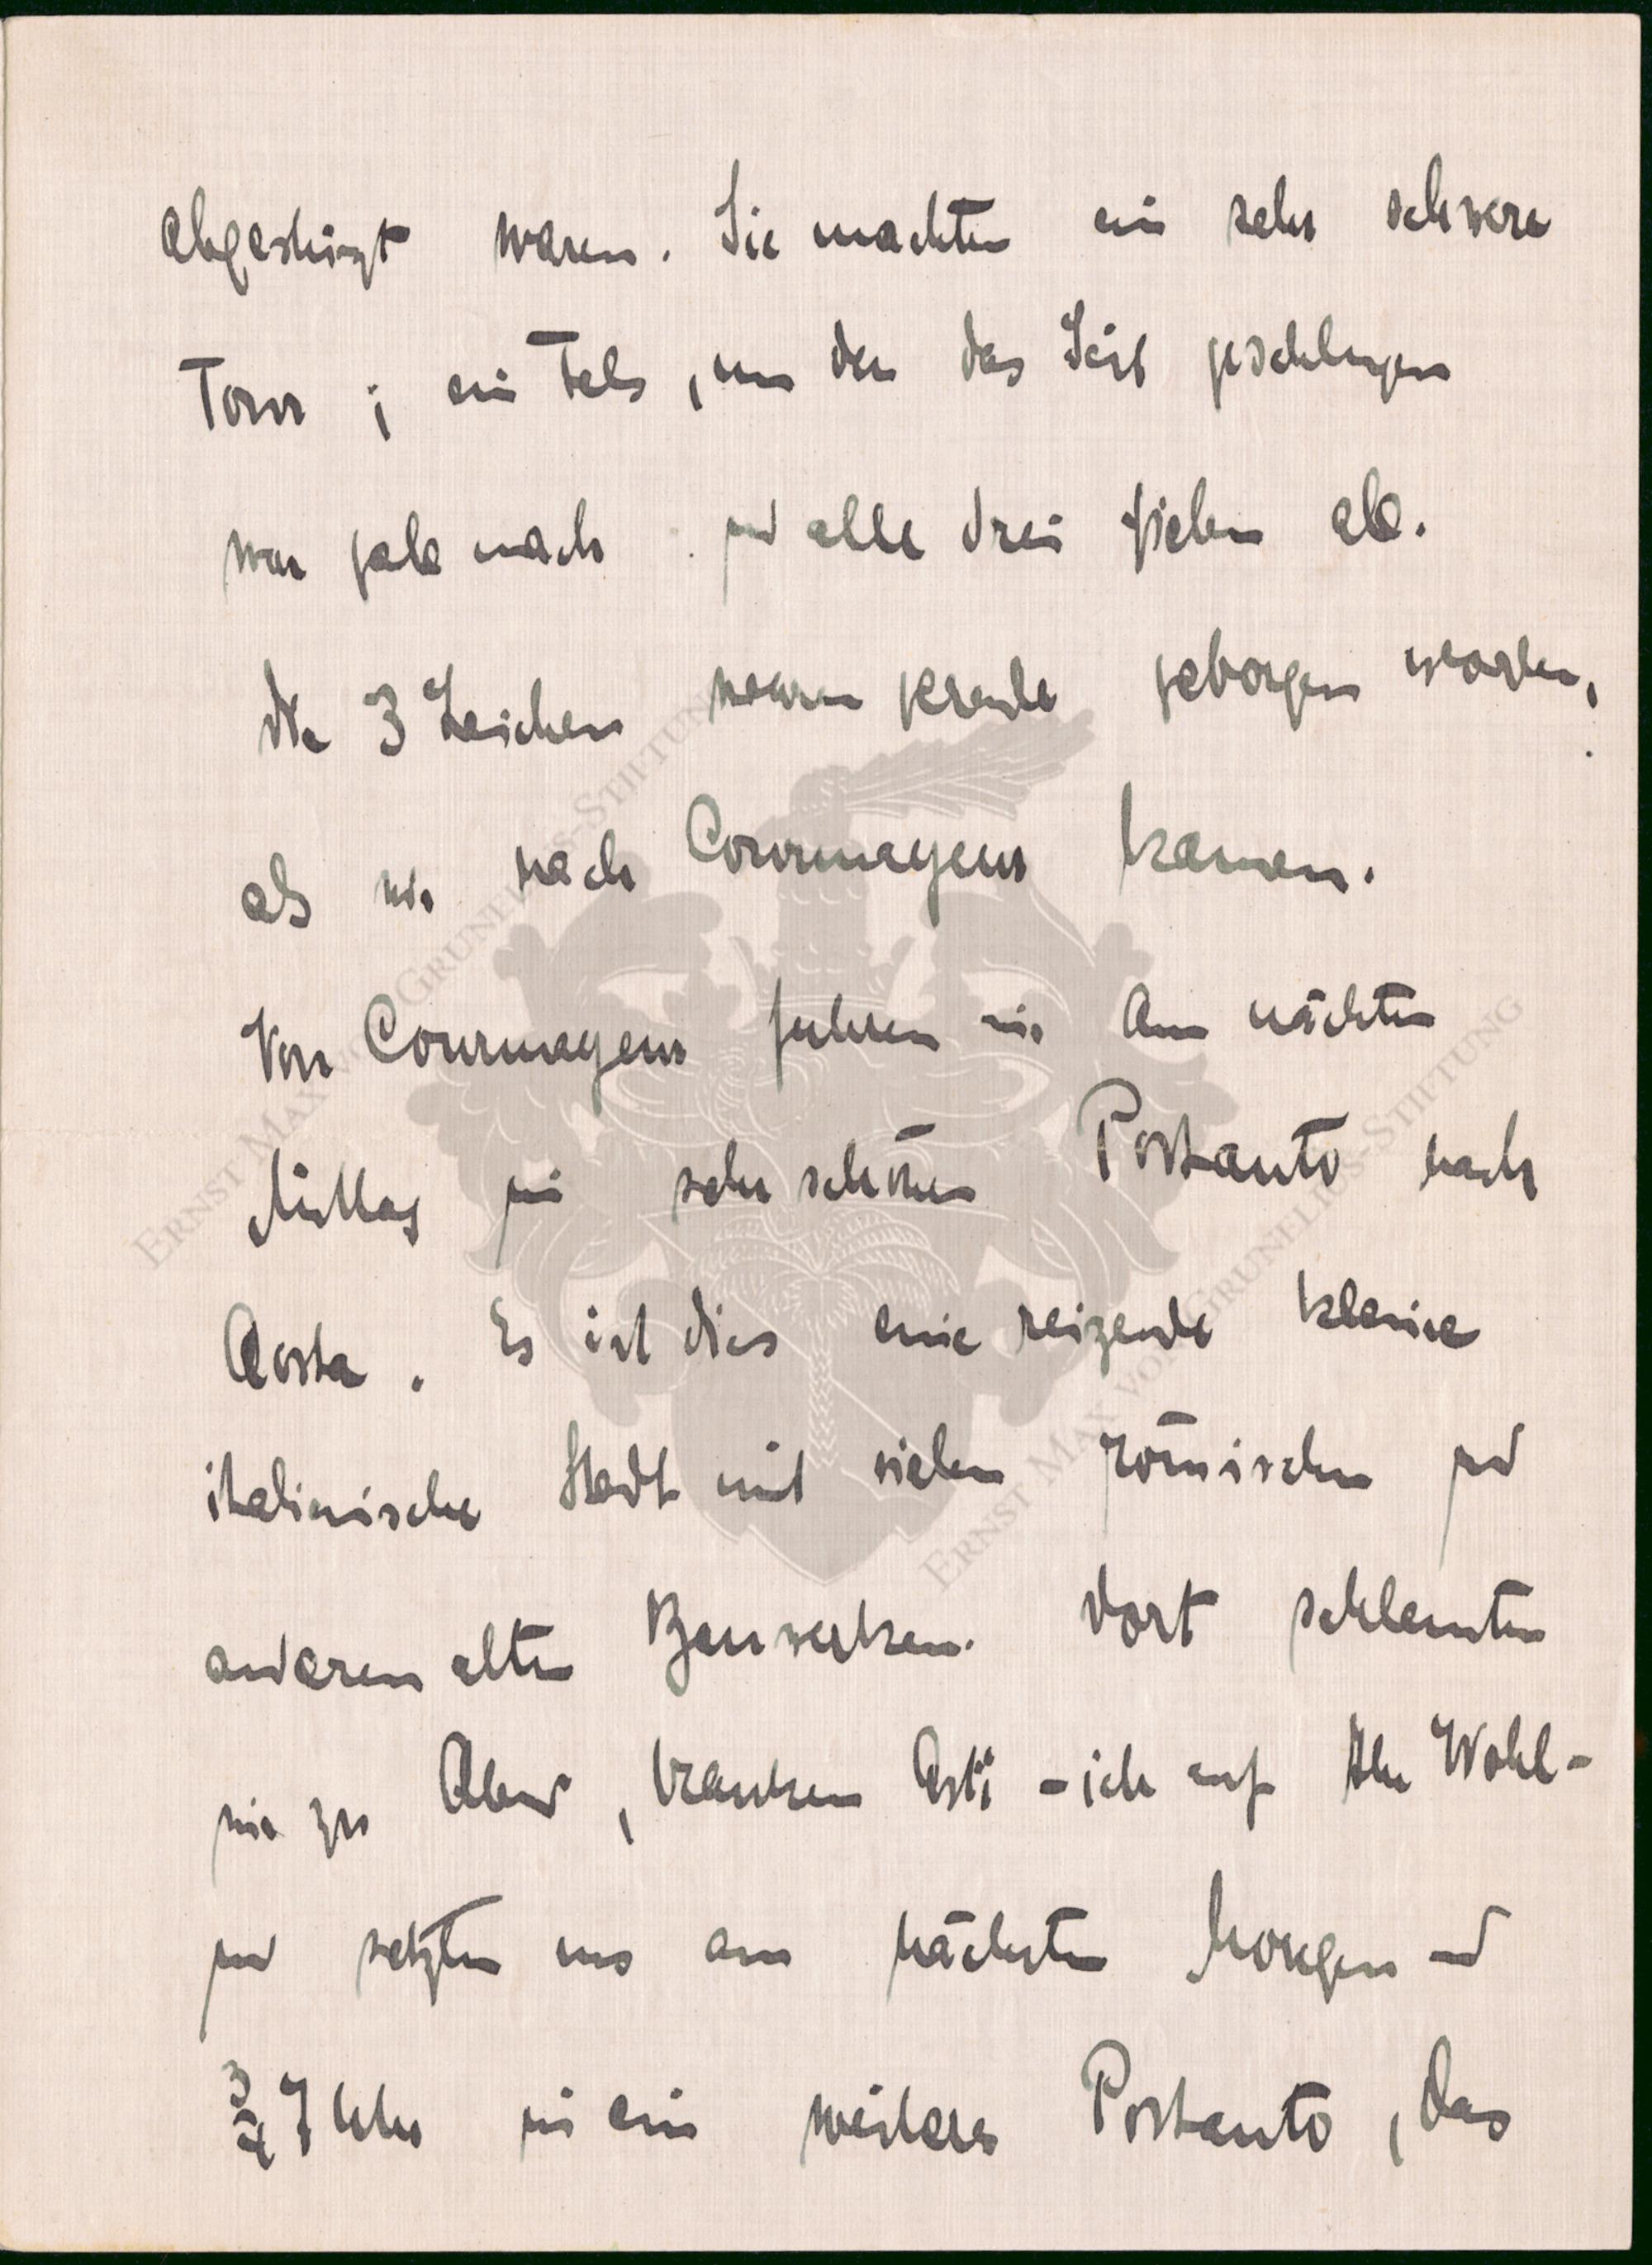 abgestürzt waren. Sie machten ein sehr schwere
Tour; ein Fels, um den das Seil geschlungen
war gab nach und alle drei fielen ab.
Die 3 Leichen waren gerade geborgen worden,
als wir nach Courmayeur kamen.
Von Courmayeur fuhren wir am nächsten
Mittag in sehr schönem Postauto nach
Aosta. Es ist dies eine reizende kleine
italienische Stadt mit vielen römischen und
anderen alten Bauwerken. Dort schlemmten
wir zu Abend, tranken Asti - ich auf Ihr Wohl -
und setzten uns am nächsten Morgen um
3/4 7 Uhr in ein weiteres Postauto, das
ERNST MAX VON GRUNELIUS-STIFTUNG
ERNST MAX VON GRUNELIUS-STIFTUNG